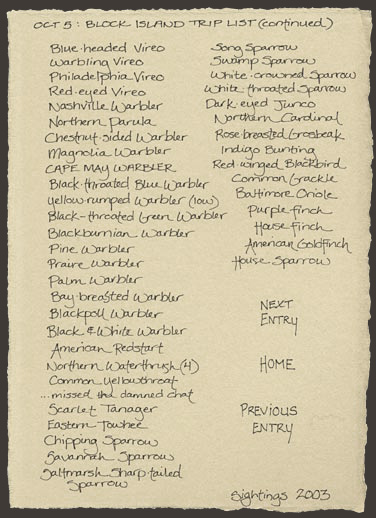 OCT 5 : BLOCK ISLAND TRIP LIST (continued)
Blue-headed Vireo
Warbling Vireo
Philadelphia Vireo
Red-eyed Vireo
Nashville Warbler
Northern Parula
Chestnut-sided Warbler
Magnolia Warbler
CAPE MAY WARBLER
Black-throated Blue Warbler
Yellow-rumped Warbler (low)
Black-throated Green Warbler
Blackburnian Warbler
Pine Warbler
Prairie Warbler
Palm Warbler
Bay-breasted Warbler
Blackpoll Warbler
Black & White Warbler
American Redstart
Northern Waterthrush (4)
Common Yellowthroat
...missed the damned chat
Scarlet Tanager
Eastern Towhee
Chipping Sparrow
Savannah Sparrow
Saltmarsh Sharp-tailed
Sparrow
Song Sparrow
Swamp Sparrow
White-crowned Sparrow
White-throated Sparrow
Dark-eyed Junco
Northern Cardinal
Rose-breasted Grosbeak
Indigo Bunting
Red-winged Blackbird
Common Grackle
Baltimore Oriole
Purple Finch
House Finch
American Goldfinch
House Sparrow
NEXT
ENTRY
HOME
PREVIOUS
ENTRY
Sightings 2003